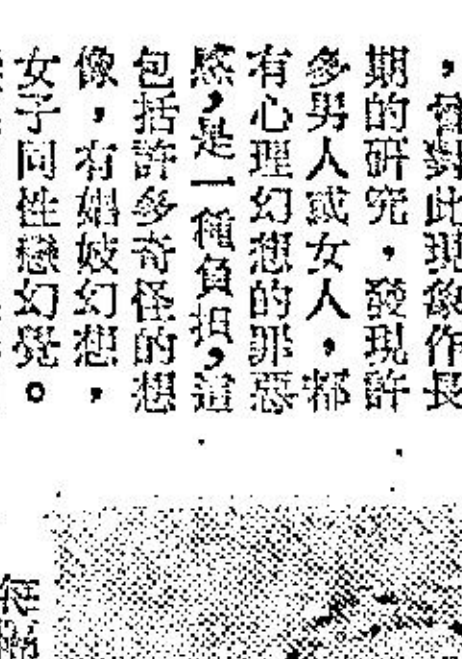 ，曾對此現象作長
期的研究，發現許
多男人或女人，都
有心理幻想的罪惡
感，是一種負担，這
包括許多奇怪的想
像，有娼妓幻想，
女子同性戀幻覺。